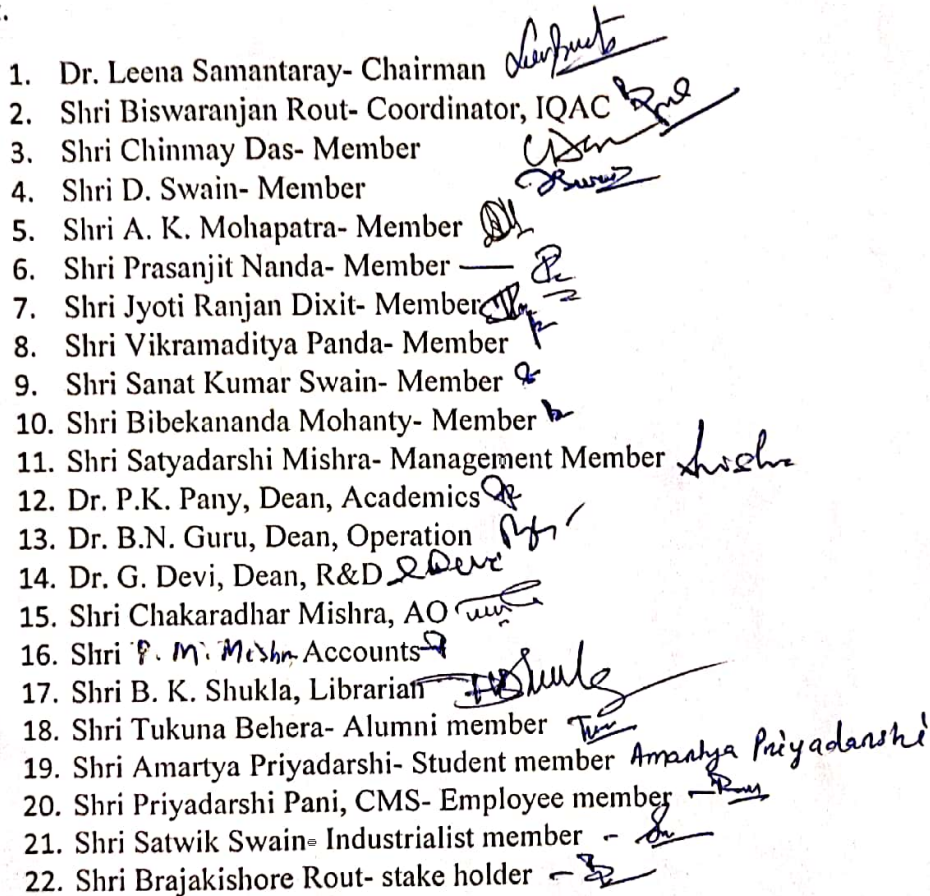 1. Dr. Leena Samantaray- Chairman
2. Shri Biswaranjan Rout- Coordinator, IQAC
3. Shri Chinmay Das- Member
4. Shri D. Swain- Member
5. Shri A. K. Mohapatra- Member
6. Shri Prasanjit Nanda- Member
7. Shri Jyoti Ranjan Dixit- Member
8. Shri Vikramaditya Panda- Member
9. Shri Sanat Kumar Swain- Member
10. Shri Bibekananda Mohanty- Member
11. Shri Satyadarshi Mishra- Management Member
12. Dr. P.K. Pany, Dean, Academics
13. Dr. B.N. Guru, Dean, Operation
14. Dr. G. Devi, Dean, R&D
15. Shri Chakaradhar Mishra, AO
16. Shri P. M. Accounts
17. Shri B. K. Shukla, Librarian
18. Shri Tukuna Behera- Alumni member
19. Shri Amartya Priyadarshi- Student member Amartya Priyadarshi
20. Shri Priyadarshi Pani, CMS- Employee member
21. Shri Satwik Swain- Industrialist member -
22. Shri Brajakishore Rout- stake holder -